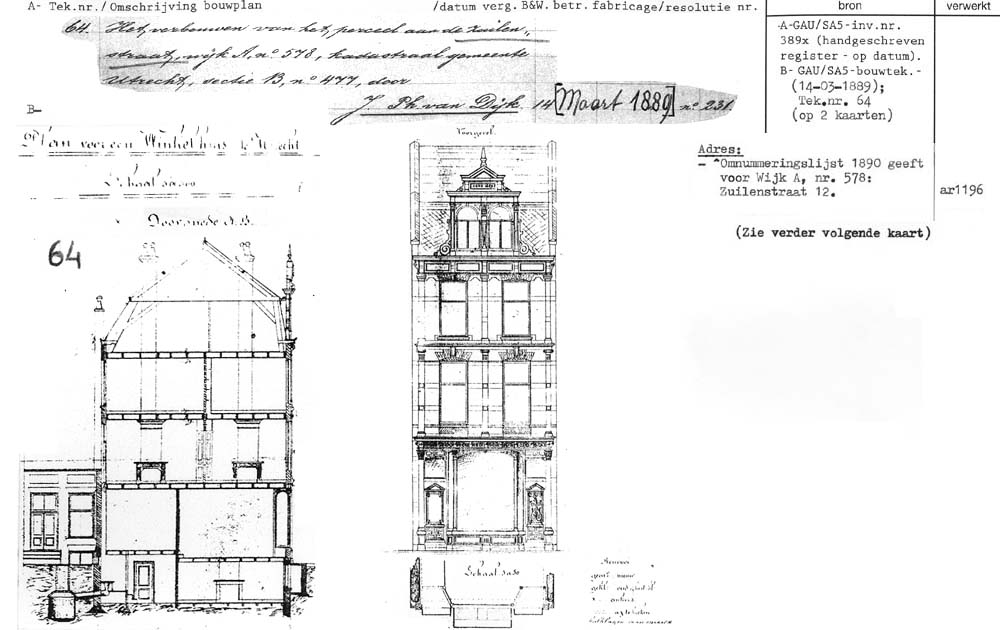 A- Tek.nr./Omschrijving bouwplan /datum verg. B&W. betr. fabricage/resolutie nr.
bron
verwerkt
64. Het verbouwen van het perceel aan de Zuilen-
straat, wijk A, n° 578, kadastraal gemeente
Utrecht, sectie B, n° 477, door
J. Ph. van Dijk. 14 [Maart 1889] n° 231.
A-GAU/SA5-inv.nr.
389x (handgeschreven
register - op datum).
B- GAU/SA5-bouwtek.-
(14-03-1889);
Tek.nr. 64
(op 2 kaarten)
B-
Plan voor een Winkelhuis te Utrecht
Schaal
Doorsnede A.B.
64
Voorgevel.
Schaal
Adres:
- *Omnummeringslijst 1890 geeft
voor Wijk A, nr. 578:
Zuilenstraat 12.
ar1196
(Zie verder volgende kaart)